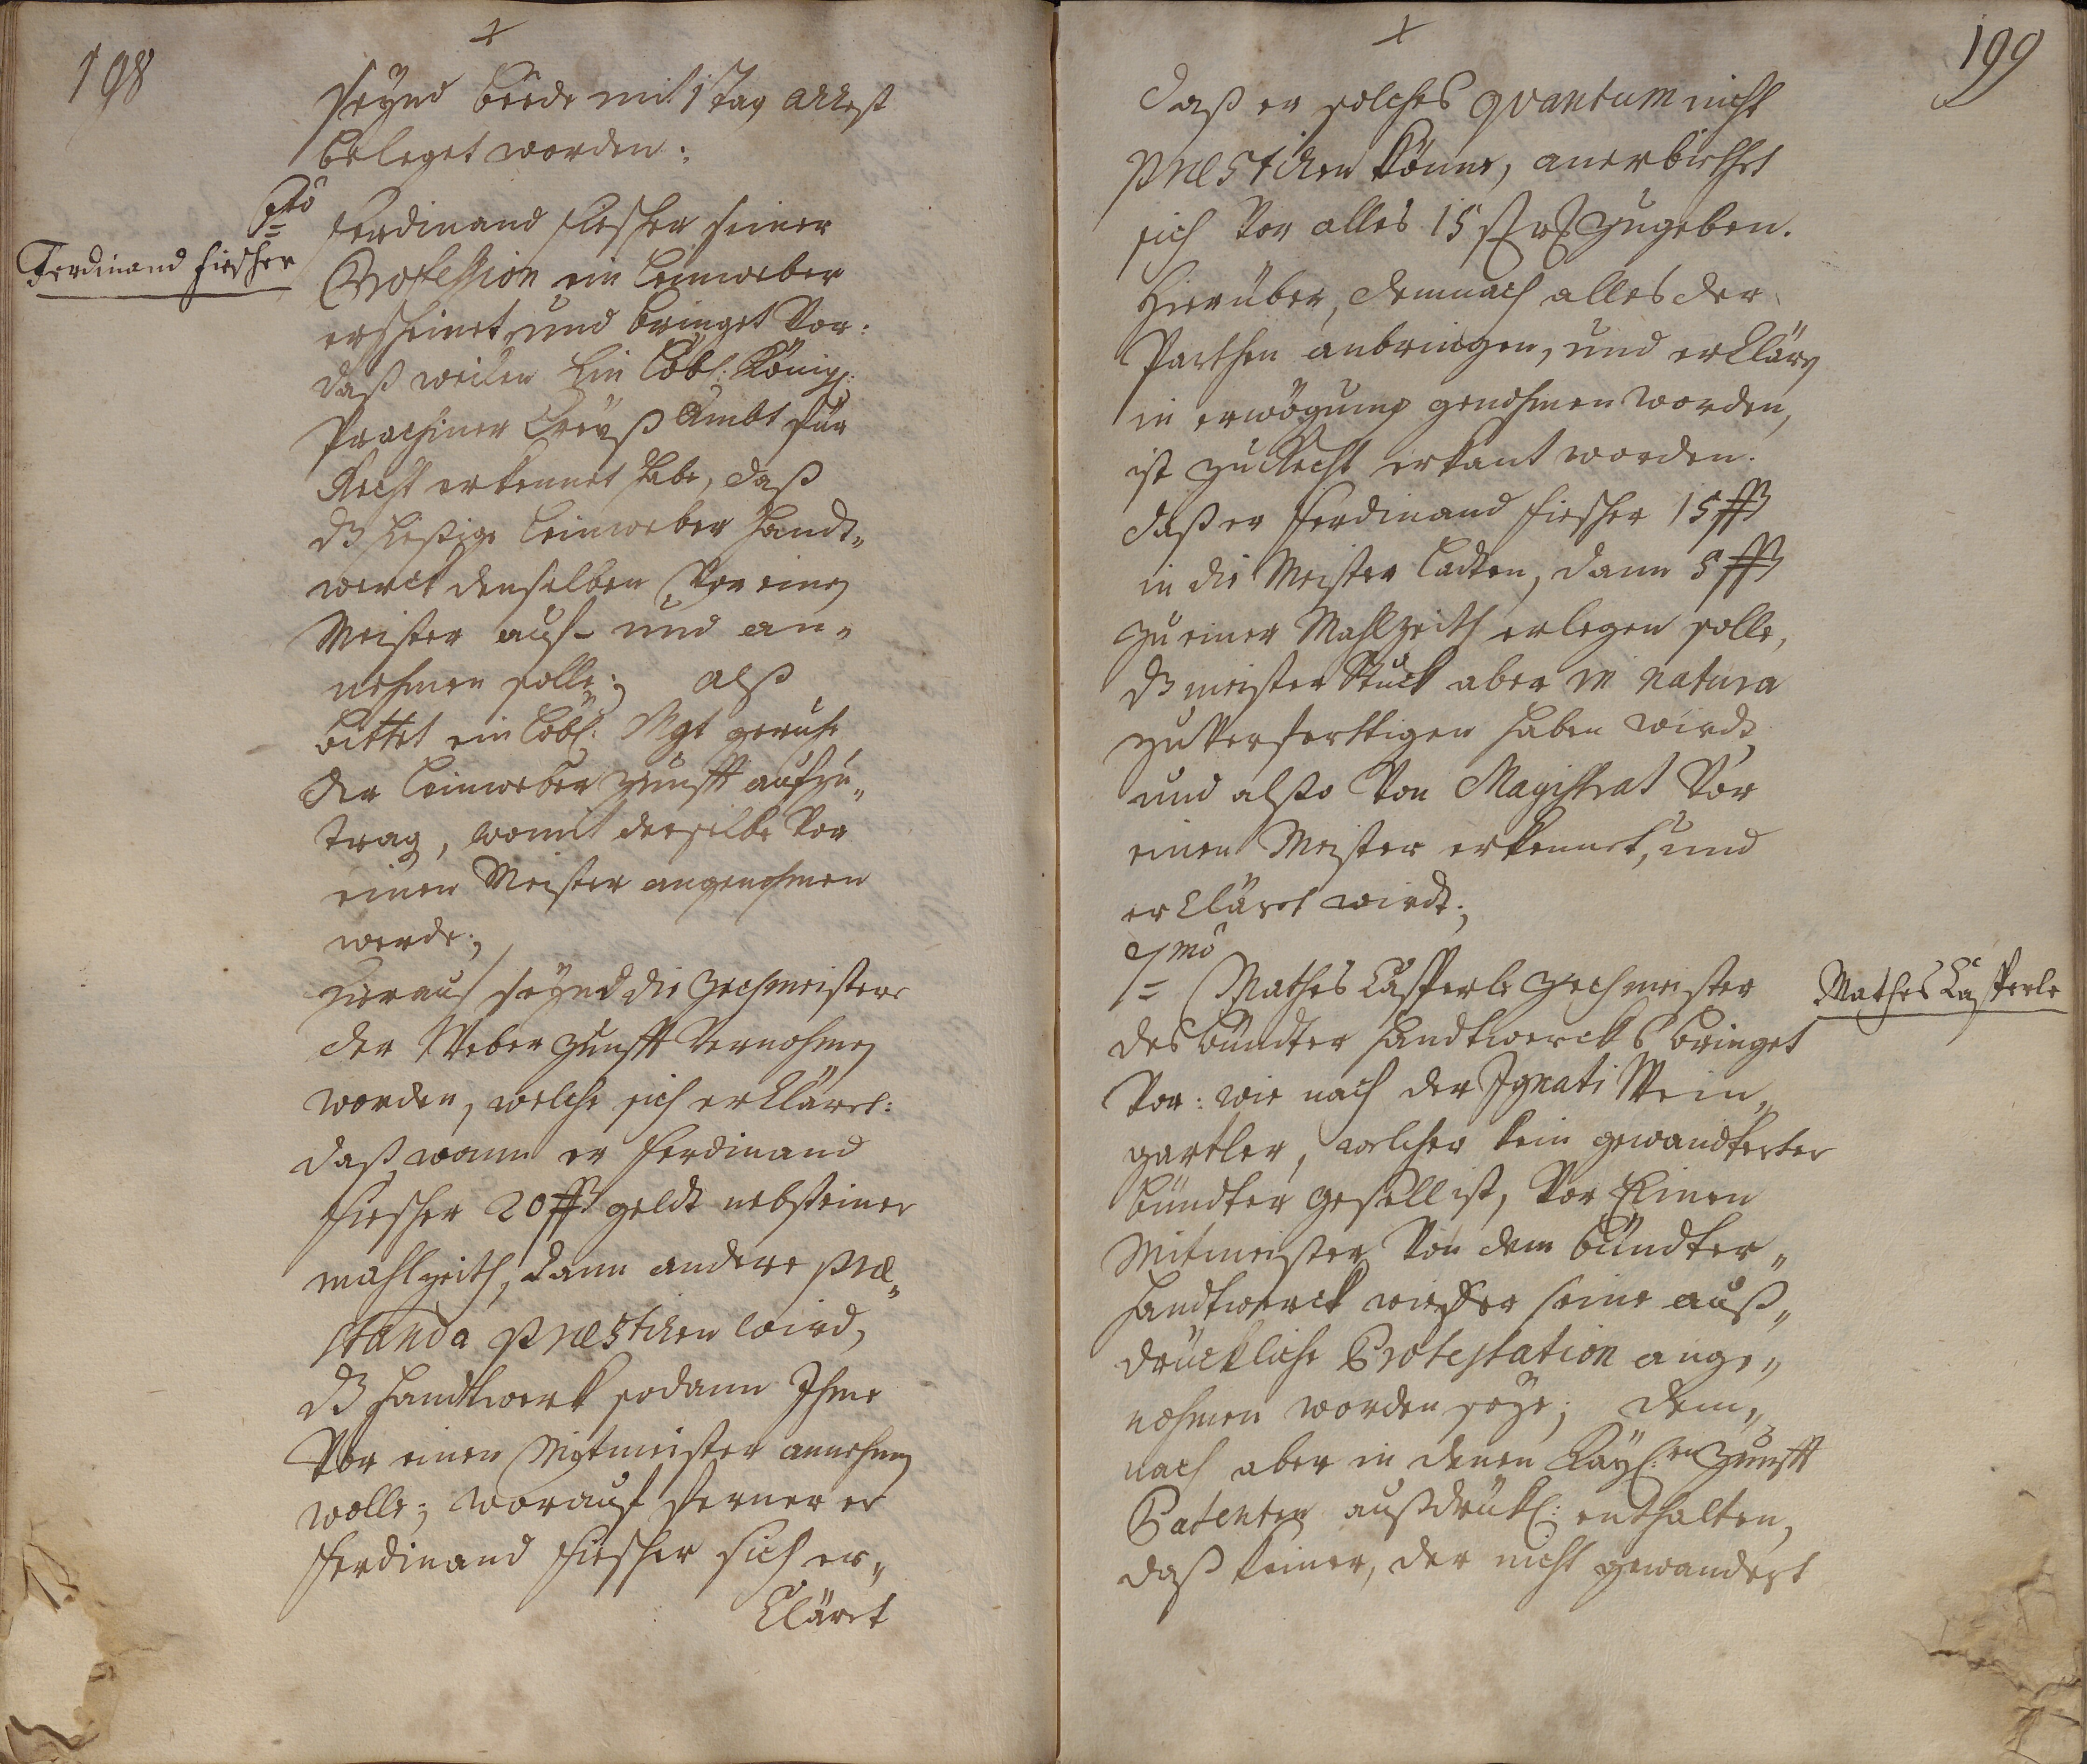 198
+
seynd beede mit 1 Tag arrest
beleget worden.
6to
Ferdinand Fiescher
Ferdinand Fiescher seiner
Profession ein Leinweber
erscheinet und bringet vor:
daß weilen Ein Löbl: Königl:
Prachiner Creyß Ambt für
Recht erkennet habe, daß
dz hießige Leinweber Handt„
werck denselben vor einen
Meister auf- und an„
nehmen solle; alß
bittet ein Löbl: Mgt geruhe
der Leinweber Zunfft aufzu„
trag, womit derselbe vor
einen Meister angenohmen
werde;
Hierauf seynd die Zechmeistere
der Weber Zunfft Vernohmen
worden, welche sich erkläret:
daß wann er Ferdinand
Fiescher 20 ff geldt nebst einer
mahlzeith, dann andere præ„
standa præstiren wird,
dz Handtwerk sodann Ihme
vor einen Mitmeister annehmen
wolle; worauf ferner er
Ferdinand Fiescher sich er„
kläret
+
199
daß er solches quantum nicht
præstiren könne, anerbiethet
sich vor alles 15 zugeben.
Hierüber, demnach alles der
Parthen anbringen, und erklären
in erwögung genohmen worden,
ist zu Recht erkant worden.
daß er Ferdinand Fiescher 15 ff
in die Meister Ladten, dann 5 ff
zu einer Mahlzeith erlegen solle,
dz meister Stuck aber in natura
zu verferttigen haben wirdt,
und also von Magistrat vor
einen Meister erkennet, und
erkläret wirdt;
7mo
Mathes Casperle
Mathes Casperle Zechmeister
des bündter Handtwercks bringet
vor: wie nach der Ignati Wein„
gartler, welcher kein gewandterter
bündter gesell ist, vor Einen
Mitmeister von dem bündter„
Handtwerck wieder seine auß„
drückliche Protestation ange„
nohmen worden seye; dem„
nach aber in denen Kayl:en Zunfft
Patenten außdrükl: enthalten,
daß keiner, der nicht gewandert